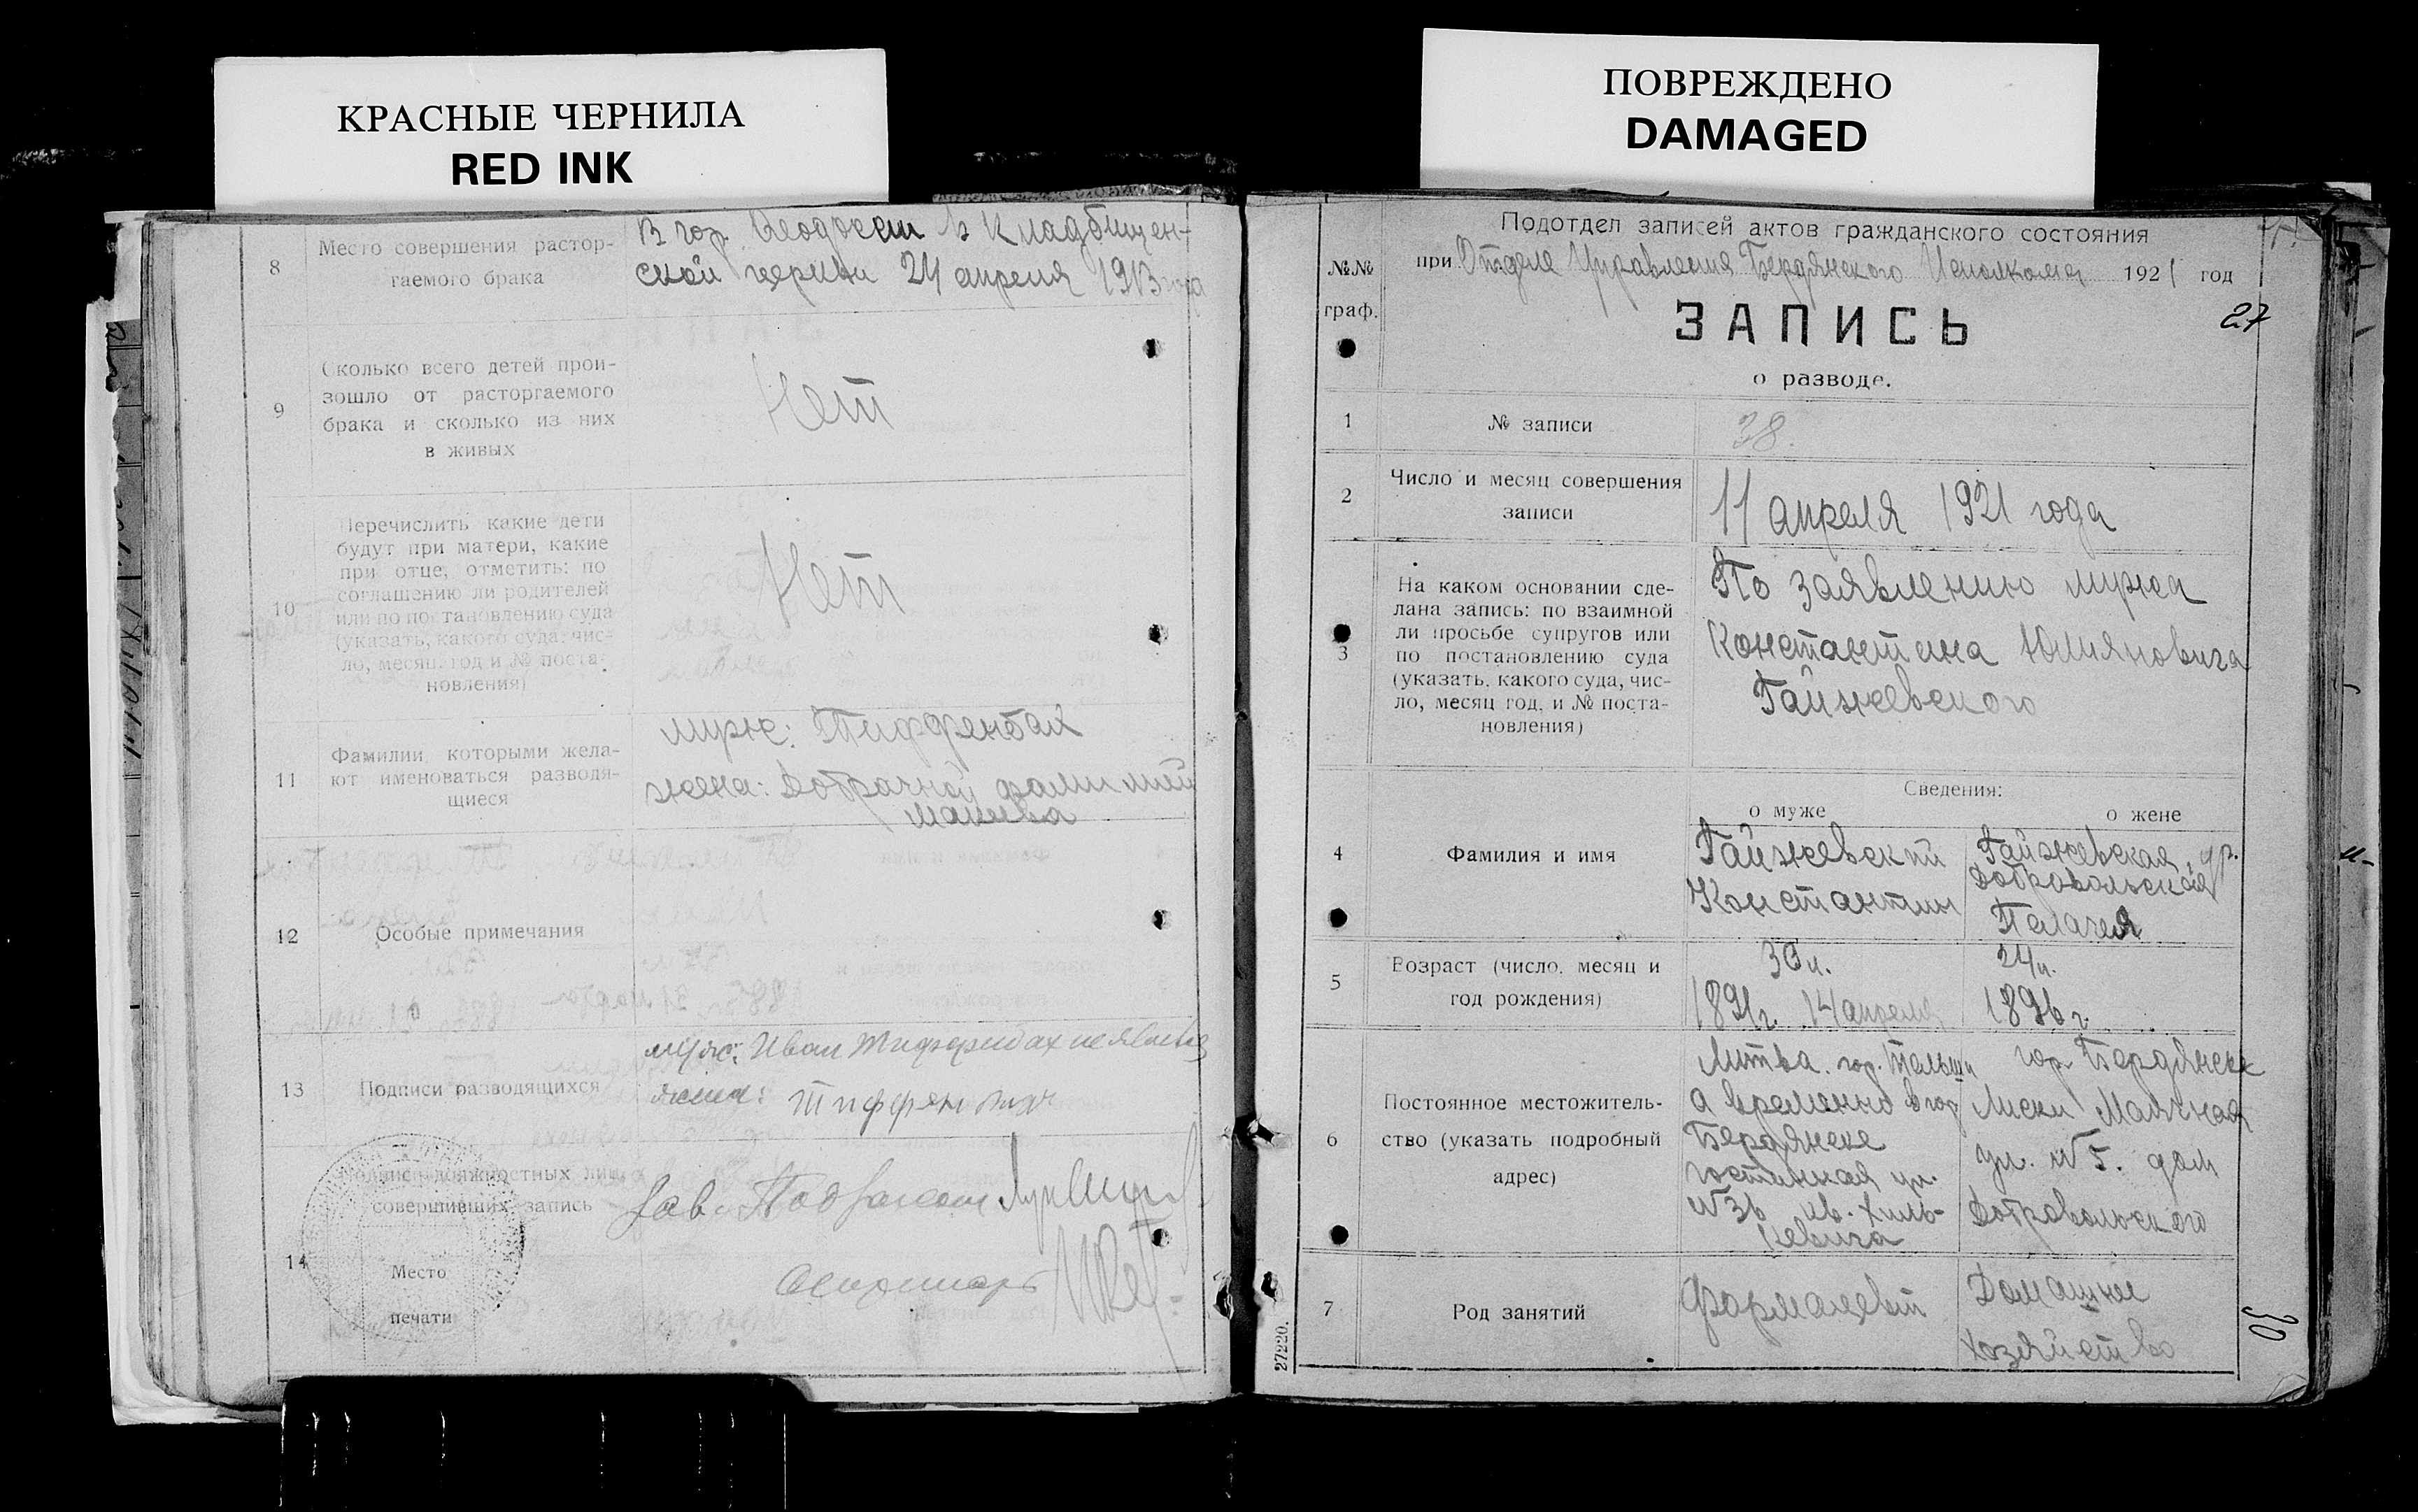 КРАСНЫЕ ЧЕРНИЛА
RED INK
ПОВРЕЖДЕНО
DAMAGED
8
Место совершения растор-
гаемого брака
В гор. Феодосии в Кладбищен-
ской церкви 24 апреля 1913 года
9
Сколько всего детей прои-
зошло от расторгаемого
брака и сколько из них
в живых
Нет
10
Перечислить какие дети
будут при матери, какие
при отце, отметить: по
соглашению ли родителей
или по постановлению суда
(указать, какого суда, чис-
ло, месяц, год и № поста-
новления)
Нет
11
Фамилии которыми жела-
ют именоваться разводя-
щиеся
муж: Тиффенбах
жена: Добрачной фамилией
12
Особые примечания
13
Подписи разводящихся
муж: Иван Тиффенбах не явился
жена: Тиффенбах
14
Подписи должностных лиц
совершивших запись
Зав. Подзагсом
Секретарь
Место
печати
№№
граф.
Подотдел записей актов гражданского состояния
при Отделе Управления Бердянского Исполкома 1921 год
27
ЗАПИСЬ
о разводе.
1
№ записи
38.
2
Число и месяц совершения
записи
11 апреля 1921 года
3
На каком основании сде-
лана запись: по взаимной
ли просьбе супругов или
по постановлению суда
(указать, какого суда, чис-
ло, месяц год, и № поста-
новления)
По заявлению мужа
Константина Юлияновича
Гайжевского
Сведения:
о муже
о жене
4
Фамилия и имя
Гайжевский
Константин
Гайжевская, ур.
Добровольская
Пелагея
5
Возраст (число, месяц и
год рождения)
30 л.
1891 г. 14 апреля
24 л.
1896 г.
6
Постоянное местожитель-
ство (указать подробный
адрес)
Литва. гор. Тельши
а временно в гор
Бердянске
гостинная ул.
№ 36 кв. Хиль-
кевича
гор Бердянске
Лиски Маячная
ул. № 5. дом
Добровольского
7
Род занятий
Формацевт
Домашнее
хозяйство
27220.
30